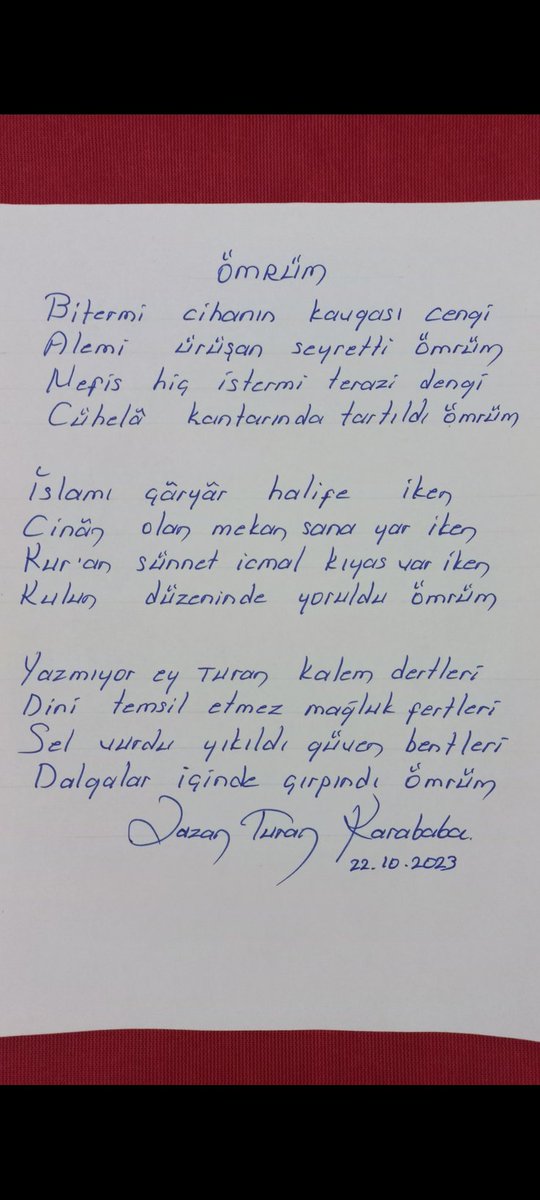 ÖMRÜM
Bitermi cihanın kavgası cengi
Alemi ürüşan seyretti ömrüm
Nefis hiç istermi terazi dengi
Cühelâ kantarında tartıldı ömrüm
İslamı çâryâr halife iken
Cinân olan mekan sana yar iken
Kur'an sünnet icmal kıyas var iken
Kulun düzeninde yoruldu ömrüm
Yazmıyor ey Turan kalem dertleri
Dini temsil etmez mağluk fertleri
Sel vurdu yıkıldı güven bentleri
Dalgalar içinde çırpındı ömrüm
Yazan Turan Karababa.
22.10.2023